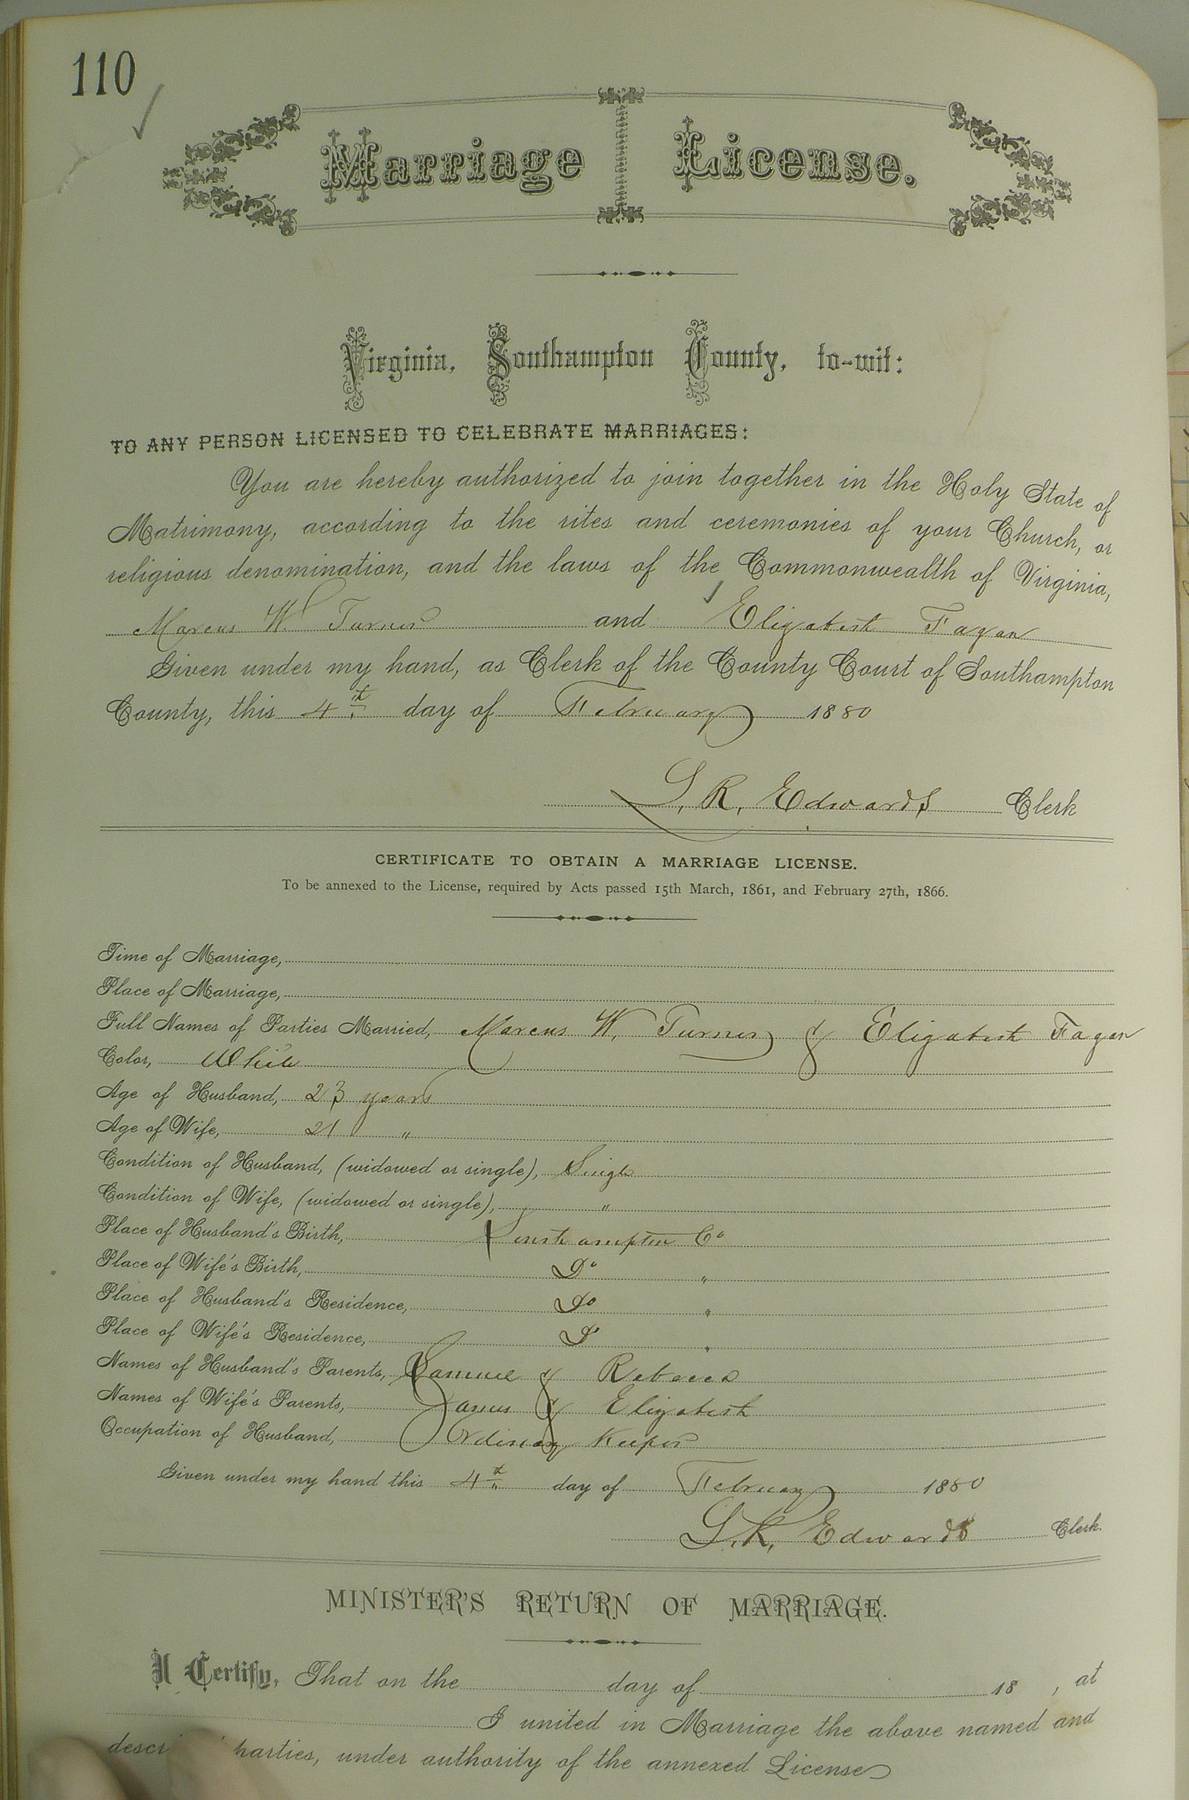 110
Marriage License.
Virginia, Southampton County, to-wit:
TO ANY PERSON LICENSED TO CELEBRATE MARRIAGES:
You are hereby authorized to join together in the Holy State of
Matrimony, according to the rites and ceremonies of your Church, or
religious denomination, and the laws of the Commonwealth of Virginia,
Marcus W. Turner and Elizabeth Fagan
Given under my hand, as Clerk of the County Court of Southampton
County, this 4th day of February 1880
L. R. Edwards Clerk
CERTIFICATE TO OBTAIN A MARRIAGE LICENSE.
To be annexed to the License, required by Acts passed 15th March, 1861, and February 27th, 1866.
Time of Marriage,
Place of Marriage,
Full Names of Parties Married, Marcus W. Turner & Elizabeth Fagan
Color, White
Age of Husband, 23 years
Age of Wife, 21 "
Condition of Husband, (widowed or single), Single
Condition of Wife, (widowed or single), "
Place of Husband's Birth, Southampton Co
Place of Wife's Birth, Do "
Place of Husband's Residence, Do "
Place of Wife's Residence, Do "
Names of Husband's Parents, Samuel & Rebecca
Names of Wife's Parents, James & Elizabeth
Occupation of Husband, Ordinary Keeper
Given under my hand this 4th day of February 1880
L. R. Edwards Clerk.
MINISTER'S RETURN OF MARRIAGE.
I Certify, That on the day of 18 , at
I united in Marriage the above named and
parties, under authority of the annexed License